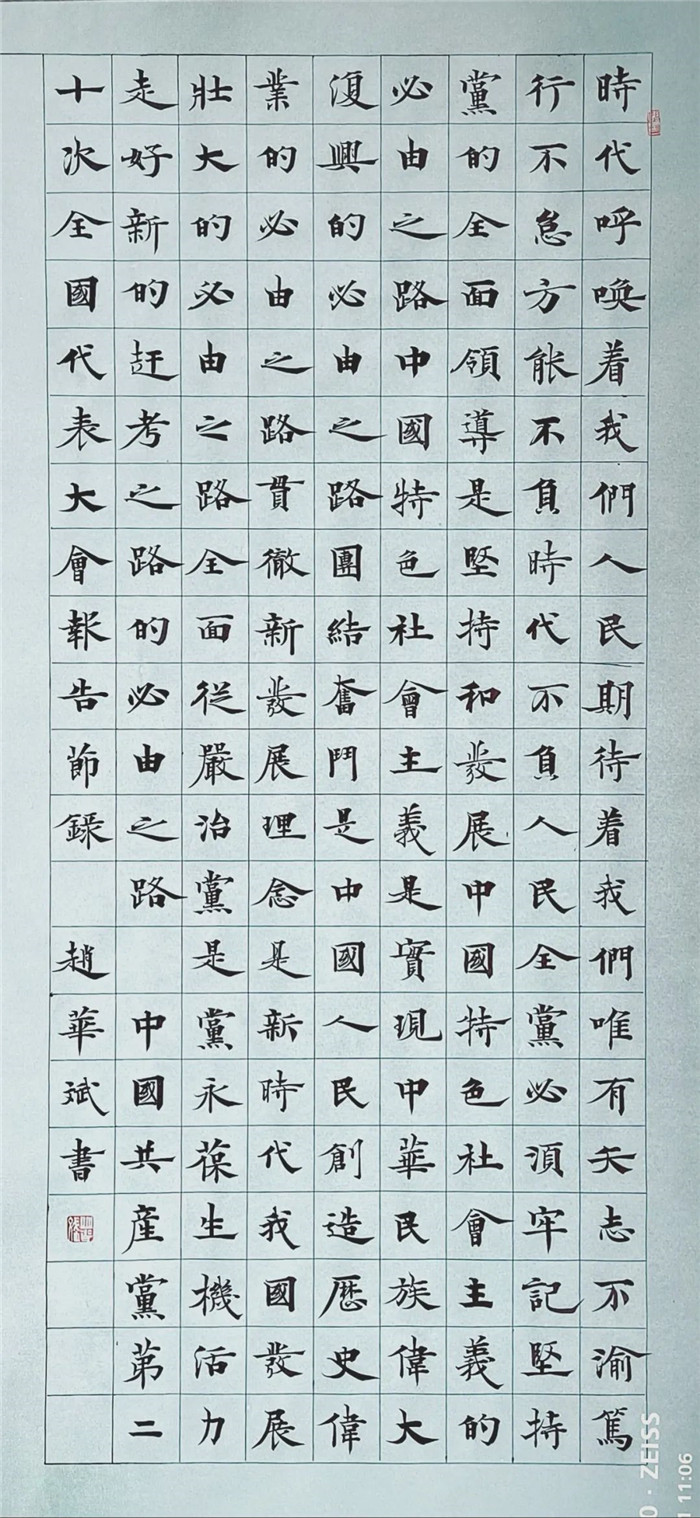 時代呼喚着我們人民期待着我們唯有矢志不渝篤
行不怠方能不負時代不負人民全黨必須牢記堅持
黨的全面領導是堅持和發展中國特色社會主義的
必由之路中國特色社會主義是實現中華民族偉大
復興的必由之路團結奮鬥是中國人民創造歷史偉
業的必由之路貫徹新發展理念是新時代我國發展
壯大的必由之路全面從嚴治黨是黨永葆生機活力
走好新的赶考之路的必由之路 中國共產黨第二
十次全國代表大會報告節錄 趙華斌書
0 · ZEISS
11:06